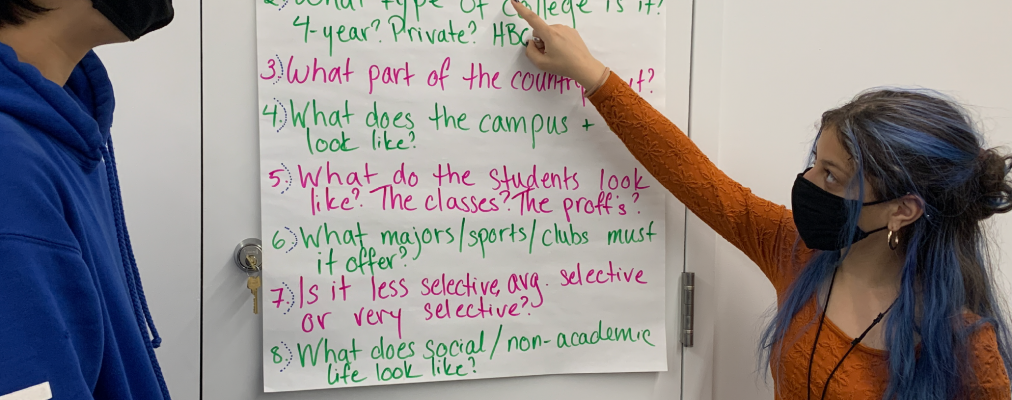 2) What type of College is it?
4-year? Private? HBC
3) What part of the country it?
4) What does the campus +
look like?
5.) What do the students look
like? The classes? The proff's?
6) What majors/sports/clubs must
it offer?
7.) Is it less selective, avg. selective
or very selective?
8.) What does social/non-academic
life look like?